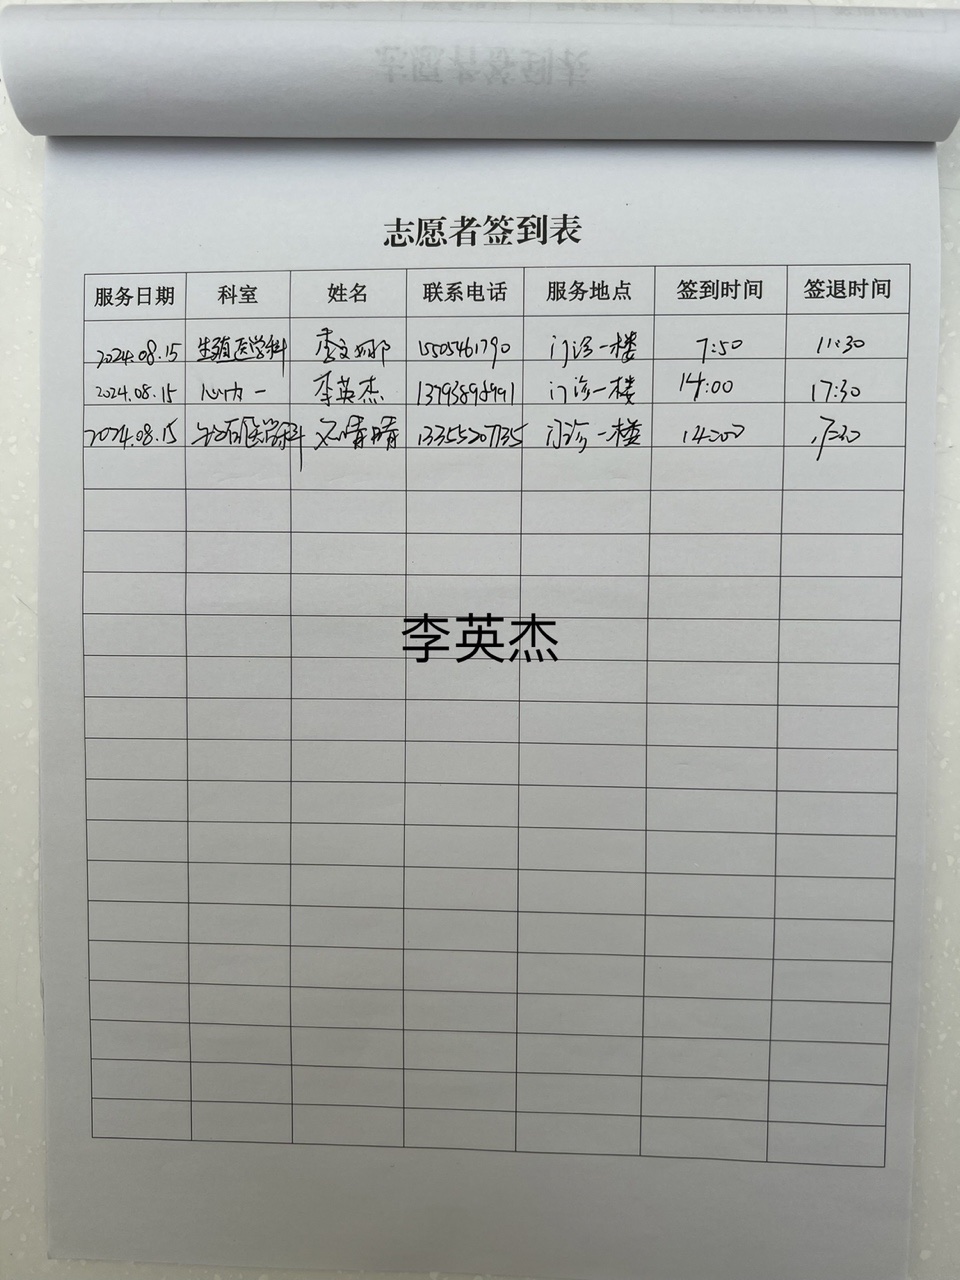 志愿者签到表
服务日期 科室 姓名 联系电话 服务地点 签到时间 签退时间
2024.08.15 生殖医学科 李文 15505461790 门诊一楼 7:50 11:30
2024.08.15 心内一 李英杰 门诊一楼 14:00 17:30
2024.08.15 晴晴 13355207735 门诊一楼 14:00
李英杰